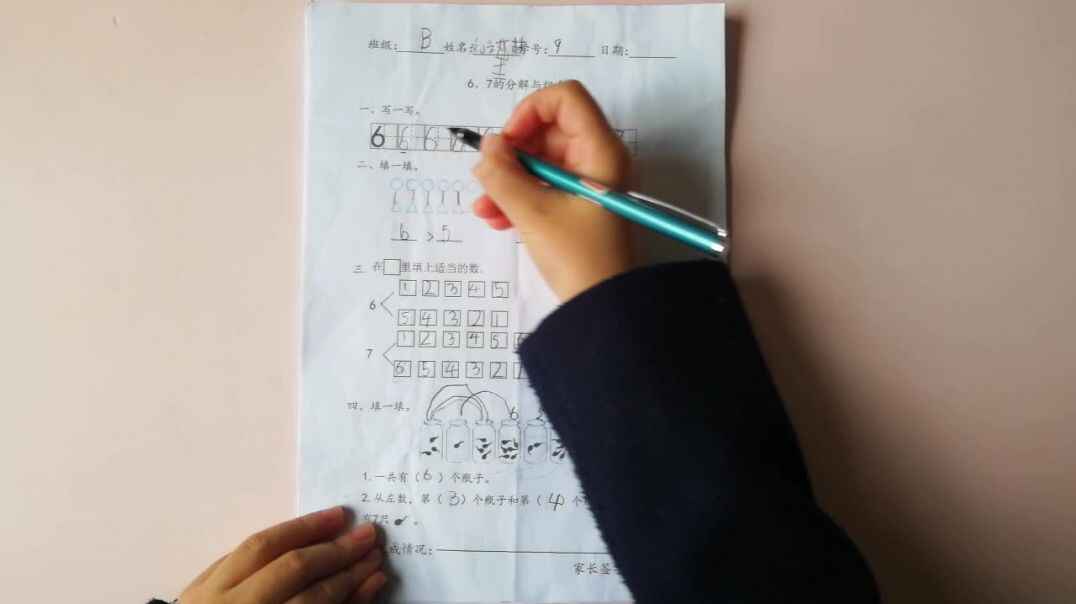 班级: B 姓名 学号: 9 日期:
6、7的分解与
一、写一写。
6 6 6
二、填一填。
6 > 5
三 在□里填上适当的数.
1 2 3 4 5
6
5 4 3 2 1
1 2 3 4 5 6
7
6 5 4 3 2 1
四、填一填。
6
1.一共有(6)个瓶子。
2.从左数,第(3)个瓶子和第(4 个
有7只 。
成情况:
家长签